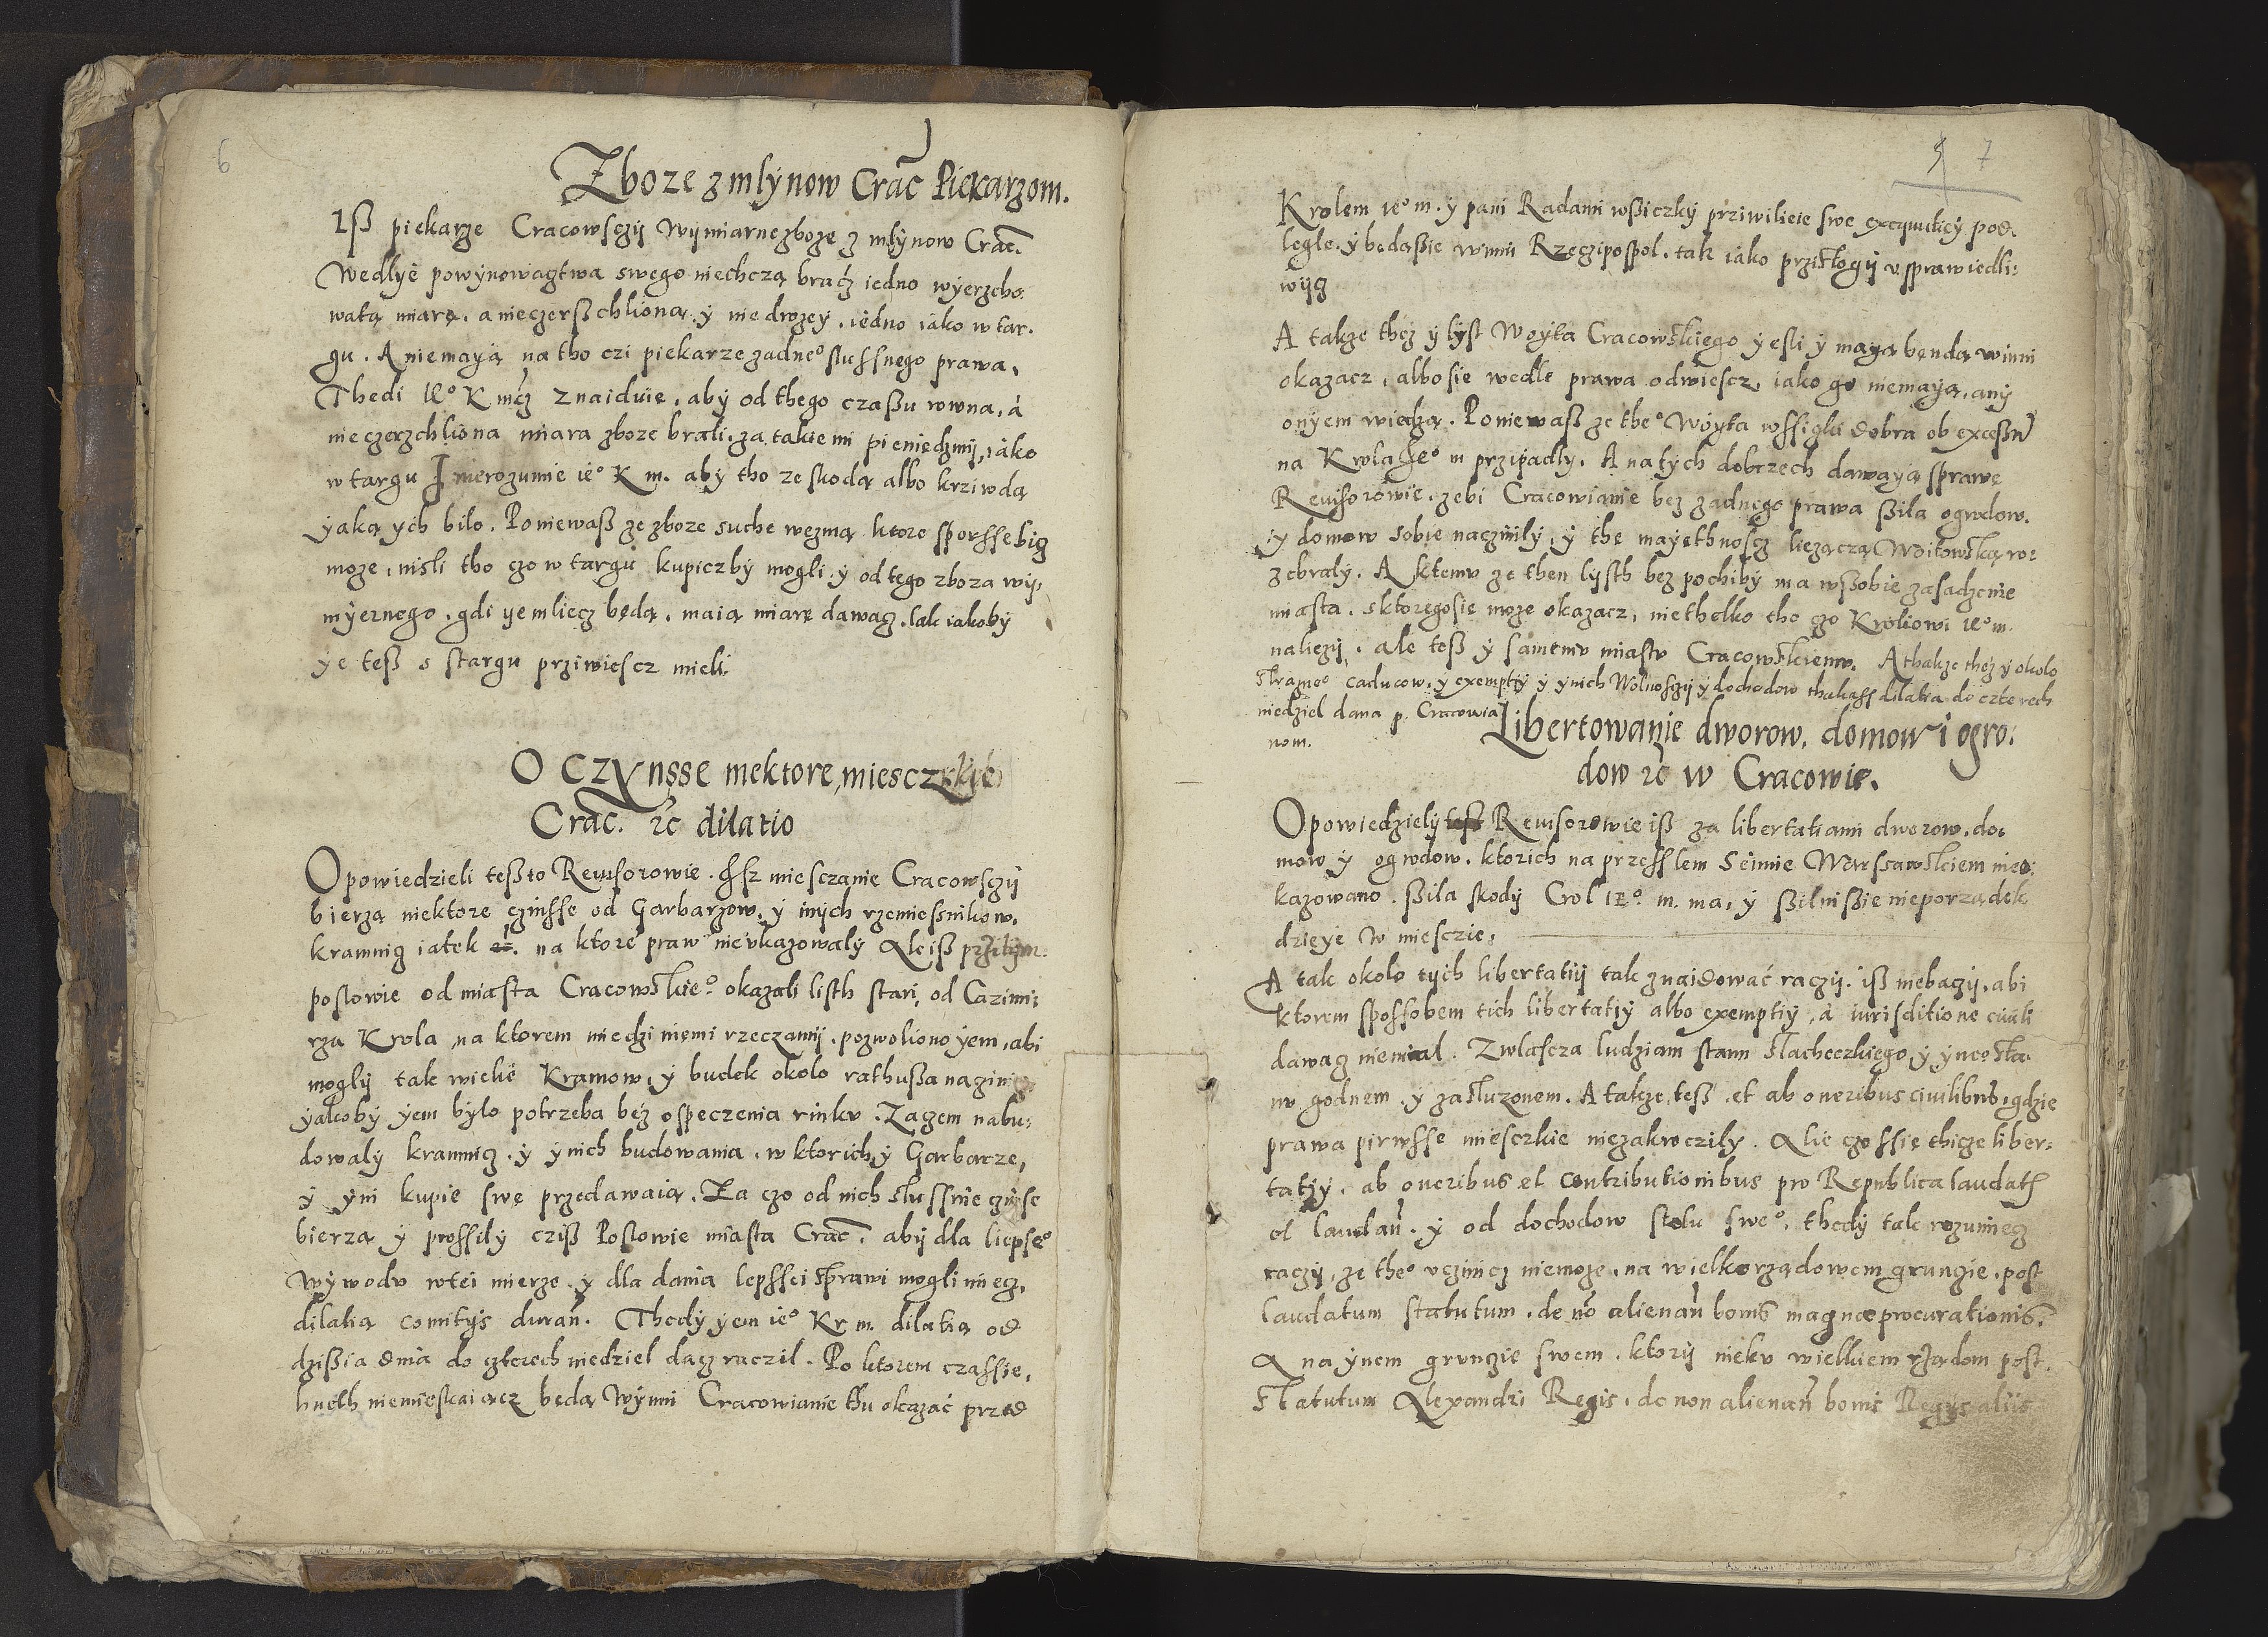 6
Zboze z mlynow Crac Piekarzom.
Iß piekarze Cracowsczy wymiarne zboze z mlynow Crac.
Wedlye powynowaztwa swego niechczą bracz iedno wyerzcho
watą miarę. a nieczerßchlioną y niedrozey. iedno iako w tar.
gu. A niemayą na tho czi piekarze zadneo slussnego prawa,
Thedi Ieo K mcz znaiduie, aby od thego czaßu rowna, a
nieczerzchliona miara zboze brali, za takiemi pieniedzmy, iako
w targu I nierozumie ieo K m. aby tho ze skodą albo krziwdą
yaką ych bilo. Poniewaß ze zboze suche wezmą ktore sporsse bicz
moze, nisli tho czo w targu kupiczby mogli. y od tego zboza wy:
myernego. gdi yem liecz będą. maią miarę dawacz. tak iakoby
ye teß s stargu prziwiescz mieli.
O Czynsse niektore, miesczkie
Crac. &c dilatio
Opowiedzieli teß to Reuisorowie. Isz miesczanie Cracowsczy
bierzą niektore czinsse od Garbarzow, y inych rzemiesnikow,
kramnicz iatek etc. na ktore praw nievkazowaly Ale iß przitym
poslowie od miasta Cracowskieo. okazali listh stari, od Cazimi
rza Krola, na ktorem miedzi niemi rzeczamy. pozwoliono yem, abi
mogly tak wielie Kramow, y budek okolo rathußa
yakoby yem bylo potrzeba bez ospeczenia rinku. Zaczem nabu:
dowaly kramnicz. y ynich budowania. w ktorich y Garbarze,
y yni kupie swe przedawaią. Za czo od nich slussnie czynse
bierzą y prossily cziß Poslowie miasta Crac. aby dla liepseo
wywodu w tei mierze. y dla dania lepssei sprawi mogli miecz,
dilatią comitys duran. Thedy yem ieo Kr m. dilatią od
dzißia dnia do czterech niedziel dacz raczil. Po ktorem czassie,
hneth niemieskaiacz będą wynni Cracowianie thu okazać przed
5 7
Krolem ieo m. y pani Radami wßiczky prziwilieie swe exequuticy pod.
legle. y będąßie winni Rzeczipospol. tak iako przislogy vsprawiedli:
wycz
A takze thez y lyst Woyta Cracowskiego yesli y mayą bendą winni
okazacz, albo sie wedle prawa odwiescz, iako go niemayą, any
onyem wiedzą. Poniewaß ze theo Woyta wssigki dobra ob exceßu
na Krola Jeo m przipadly. A na tych dobrzech dawayą sprawę
Reuisorowie. zebi Cracowianie bez zadnego prawa ßila ogrodow.
y domow sobie naczinily, y the mayethnoscz liezączą Woitowską ro:
zebraly. A ktemu ze then lysth bez pochiby ma wßobie zasadzenie
miasta. s ktoregosie moze okazacz, niethelko tho czo Kroliowi Ieo m.
naliezy. ale teß y samemu miastu Cracowskiemu. A thakze thez y okolo
strazneo caducow. y exemptiy y ynich Wolnosczy y dochodow thakass dilatia do czterech
niedziel dana p. Cracowia
nom.
Libertowanie dworow. domow i ogro.
dow &c w Cracowie.
Opowiedziely Reuisorowie iß za libertatiami dworow, do:
mow y ogrodow. ktorich na przesslem Seimie Warscawskiem nieo:
kazowano. ßila skody Crol IEo. m. ma, y ßilnißie nieporządek
dzieye w miesczie,
A tak okolo tych libertatiy tak znaidować raczy. iß niebaczy, abi
ktorem sposobem tich libertatiy albo exemptiy, a iurisditione ciuili
dawacz niemial. Zwlascza ludziam stanu slacheczkiego y yneo sta
nu godnem. y zasluzonem. A takze teß et ab oneribus ciuilibus, gdzie
prawa pirwsse miesczkie niezakroczily. Alie czo ssie thicze liber:
tatiy. ab oneribus et Contributionibus pro Republica laudatis
et laudan. y od dochodow stolu sweo. thedy tak rozumiecz
raczy, ze theo vczinicz niemoze, na wielkorządowem gruncie. post
laudatum statutum. de no alienan bonis magnæ procurationis.
A na ynem gruncie swem. ktory nieku wielkiem rządom post.
Statutum Alexandri Regis. de non alienan bonis Regys aliis